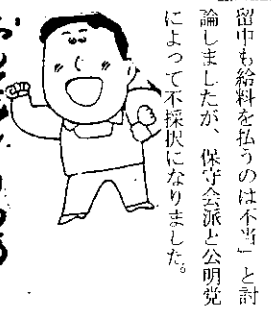 留中も給料を払うのは不当」と討
論しましたが、保守会派と公明党
によって不採択になりました。